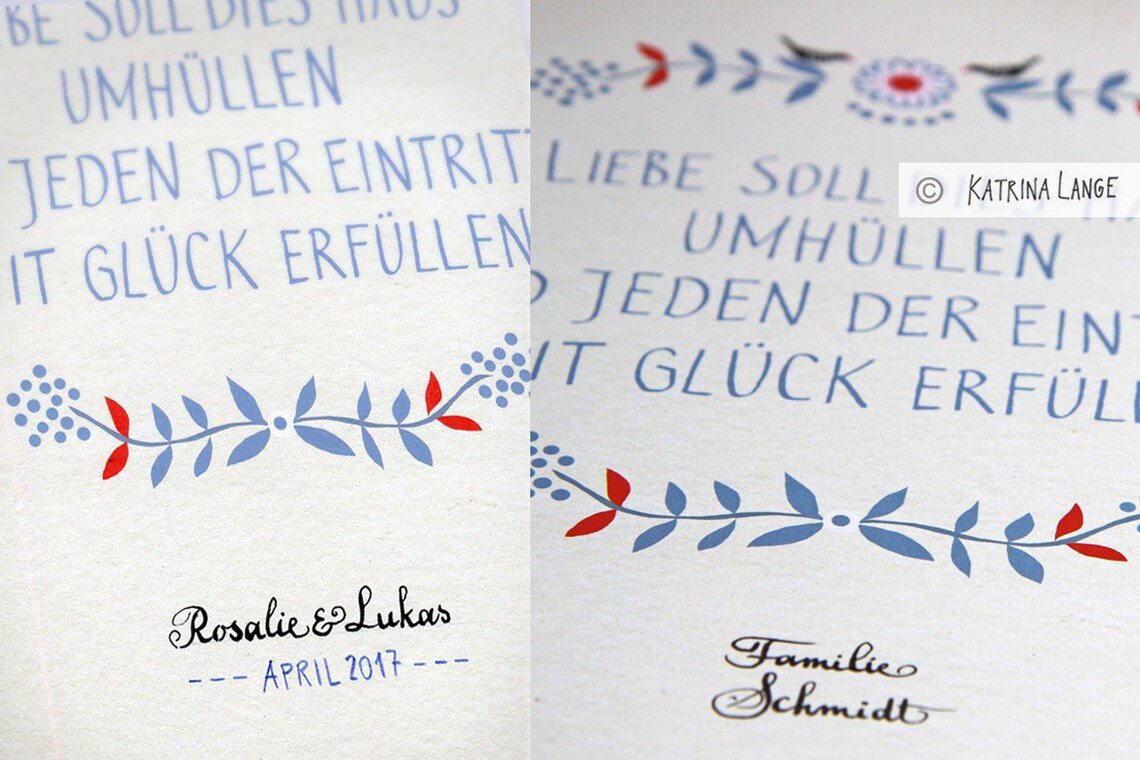 BE SOLL DIES HAUS
UMHÜLLEN
JEDEN DER EINTRITT
IT GLÜCK ERFÜLLEN
Rosalie & Lukas
--- APRIL 2017 ---
LIEBE SOLL DIES HA
© KATRINA LANGE
UMHÜLLEN
D JEDEN DER EINT
IT GLÜCK ERFÜLL
Familie
Schmidt